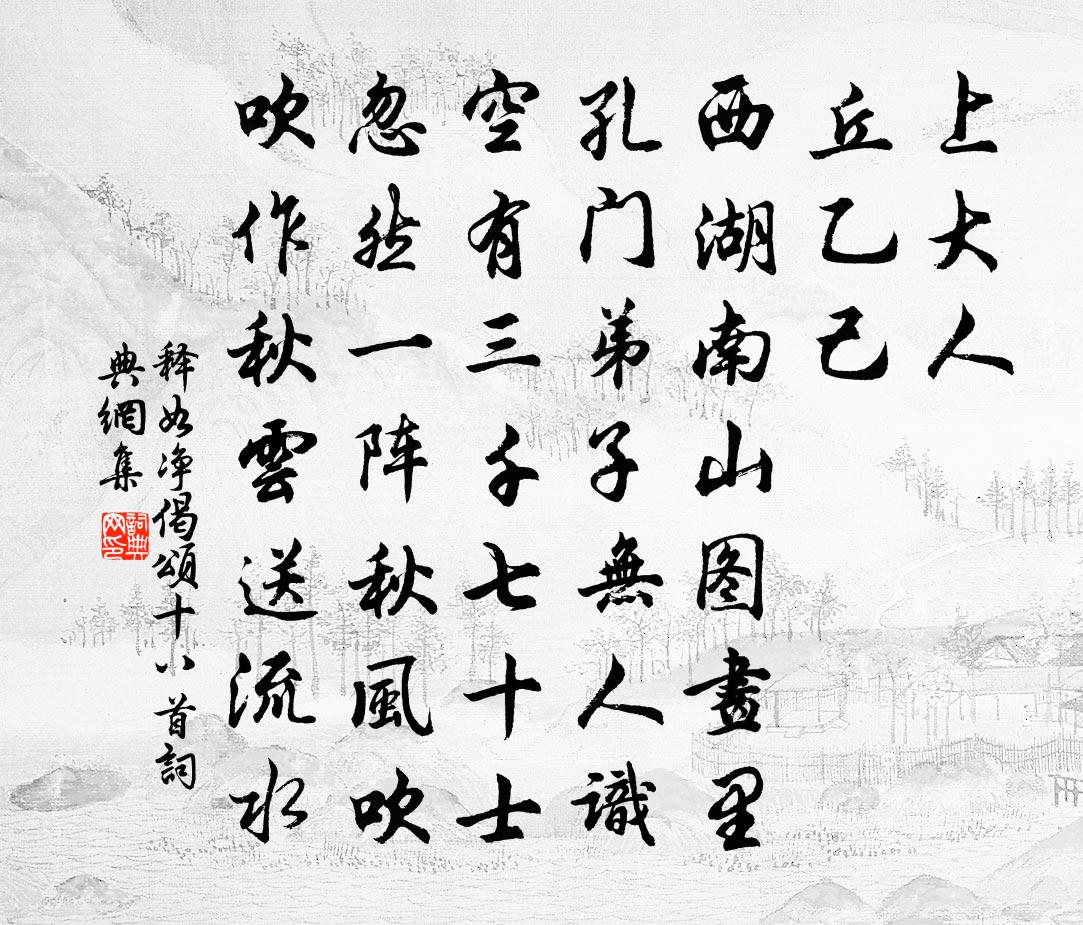 上大人
丘乙己
西湖南山图畫里
孔门弟子無人識
空有三千七十士
忽然一阵秋風吹
吹作秋雲送流水
释如净偈頌十八首詞
典網集
詞典网印